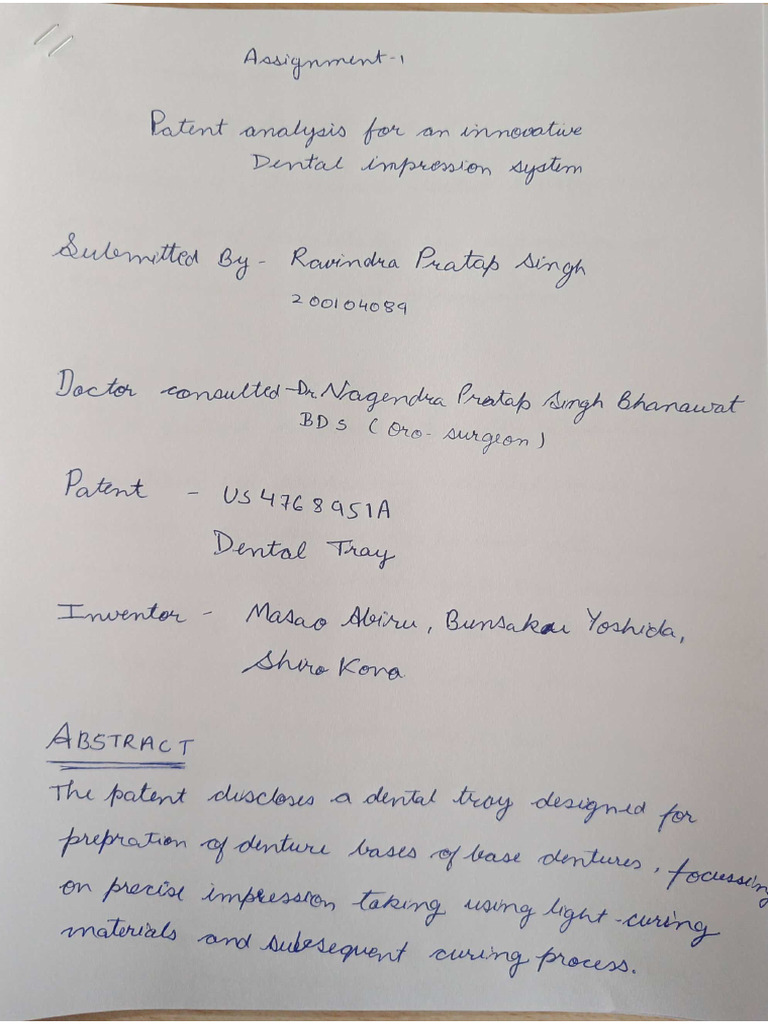 Assignment-1
Patent analysis for an innovative
Dental impression system
Submitted By - Ravindra Pratap Singh
200104089
Doctor consulted - Dr. Nagendra Pratap Singh Bhanawat
BDS (Oro-surgeon)
Patent - US4768951A
Dental Tray
Inventor - Masao Abiru, Bunsakau Yoshida,
Shiro Kora
ABSTRACT
The patent discloses a dental tray designed for
prepration of denture bases of base dentures, focussing
on precise impression taking using light-curing
materials and subsequent curing process.